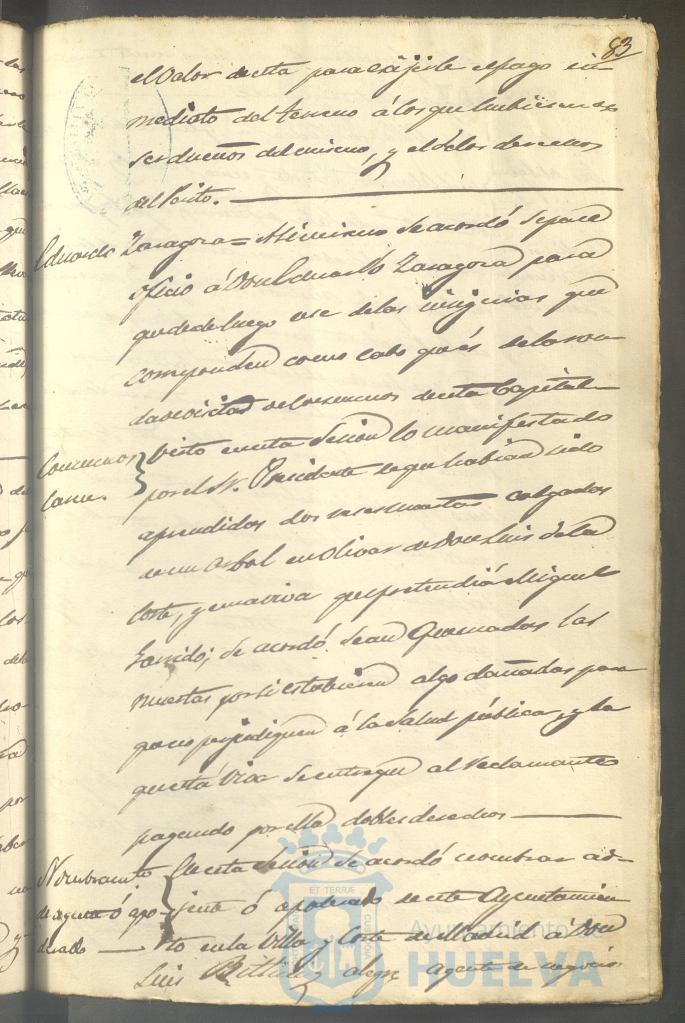 83
el valor de esta para exijirle el pago in-
mediato del terreno á los que hubiesen
ser dueños del mismo, y el de los
del Posito.
Eduardo Zaragoza = Asimismo se acordó se pase
oficio á Don Eduardo Zaragoza para
que desde luego use de las insignias que
corresponden como cabo que és de la ron-
da de esta Capital
Comunes
Carne.
Visto en esta Sesion lo manifestado
por el Sr. Presidente de que habian sido
aprendidos dos reses muertas colgadas
de un arbol en Olivar de Don Luis de la
Corte, y una viva que pretendió Miguel
Garrido; se acordó sean Quemadas las
muertas por si estubieran algo dañadas para
que no perjudiquen á la salud pública, y la
que está viva se entregue al reclamante
pagando por ella dobles derechos
Nombramto
de agente ó apo-
derado
En esta sesion se acordó nombrar ad-
jente ó apoderado de este Ayuntamien
to en la Villa y Corte de Madrid á Don
Luis agente de negocios
Ayuntamiento
HUELVA